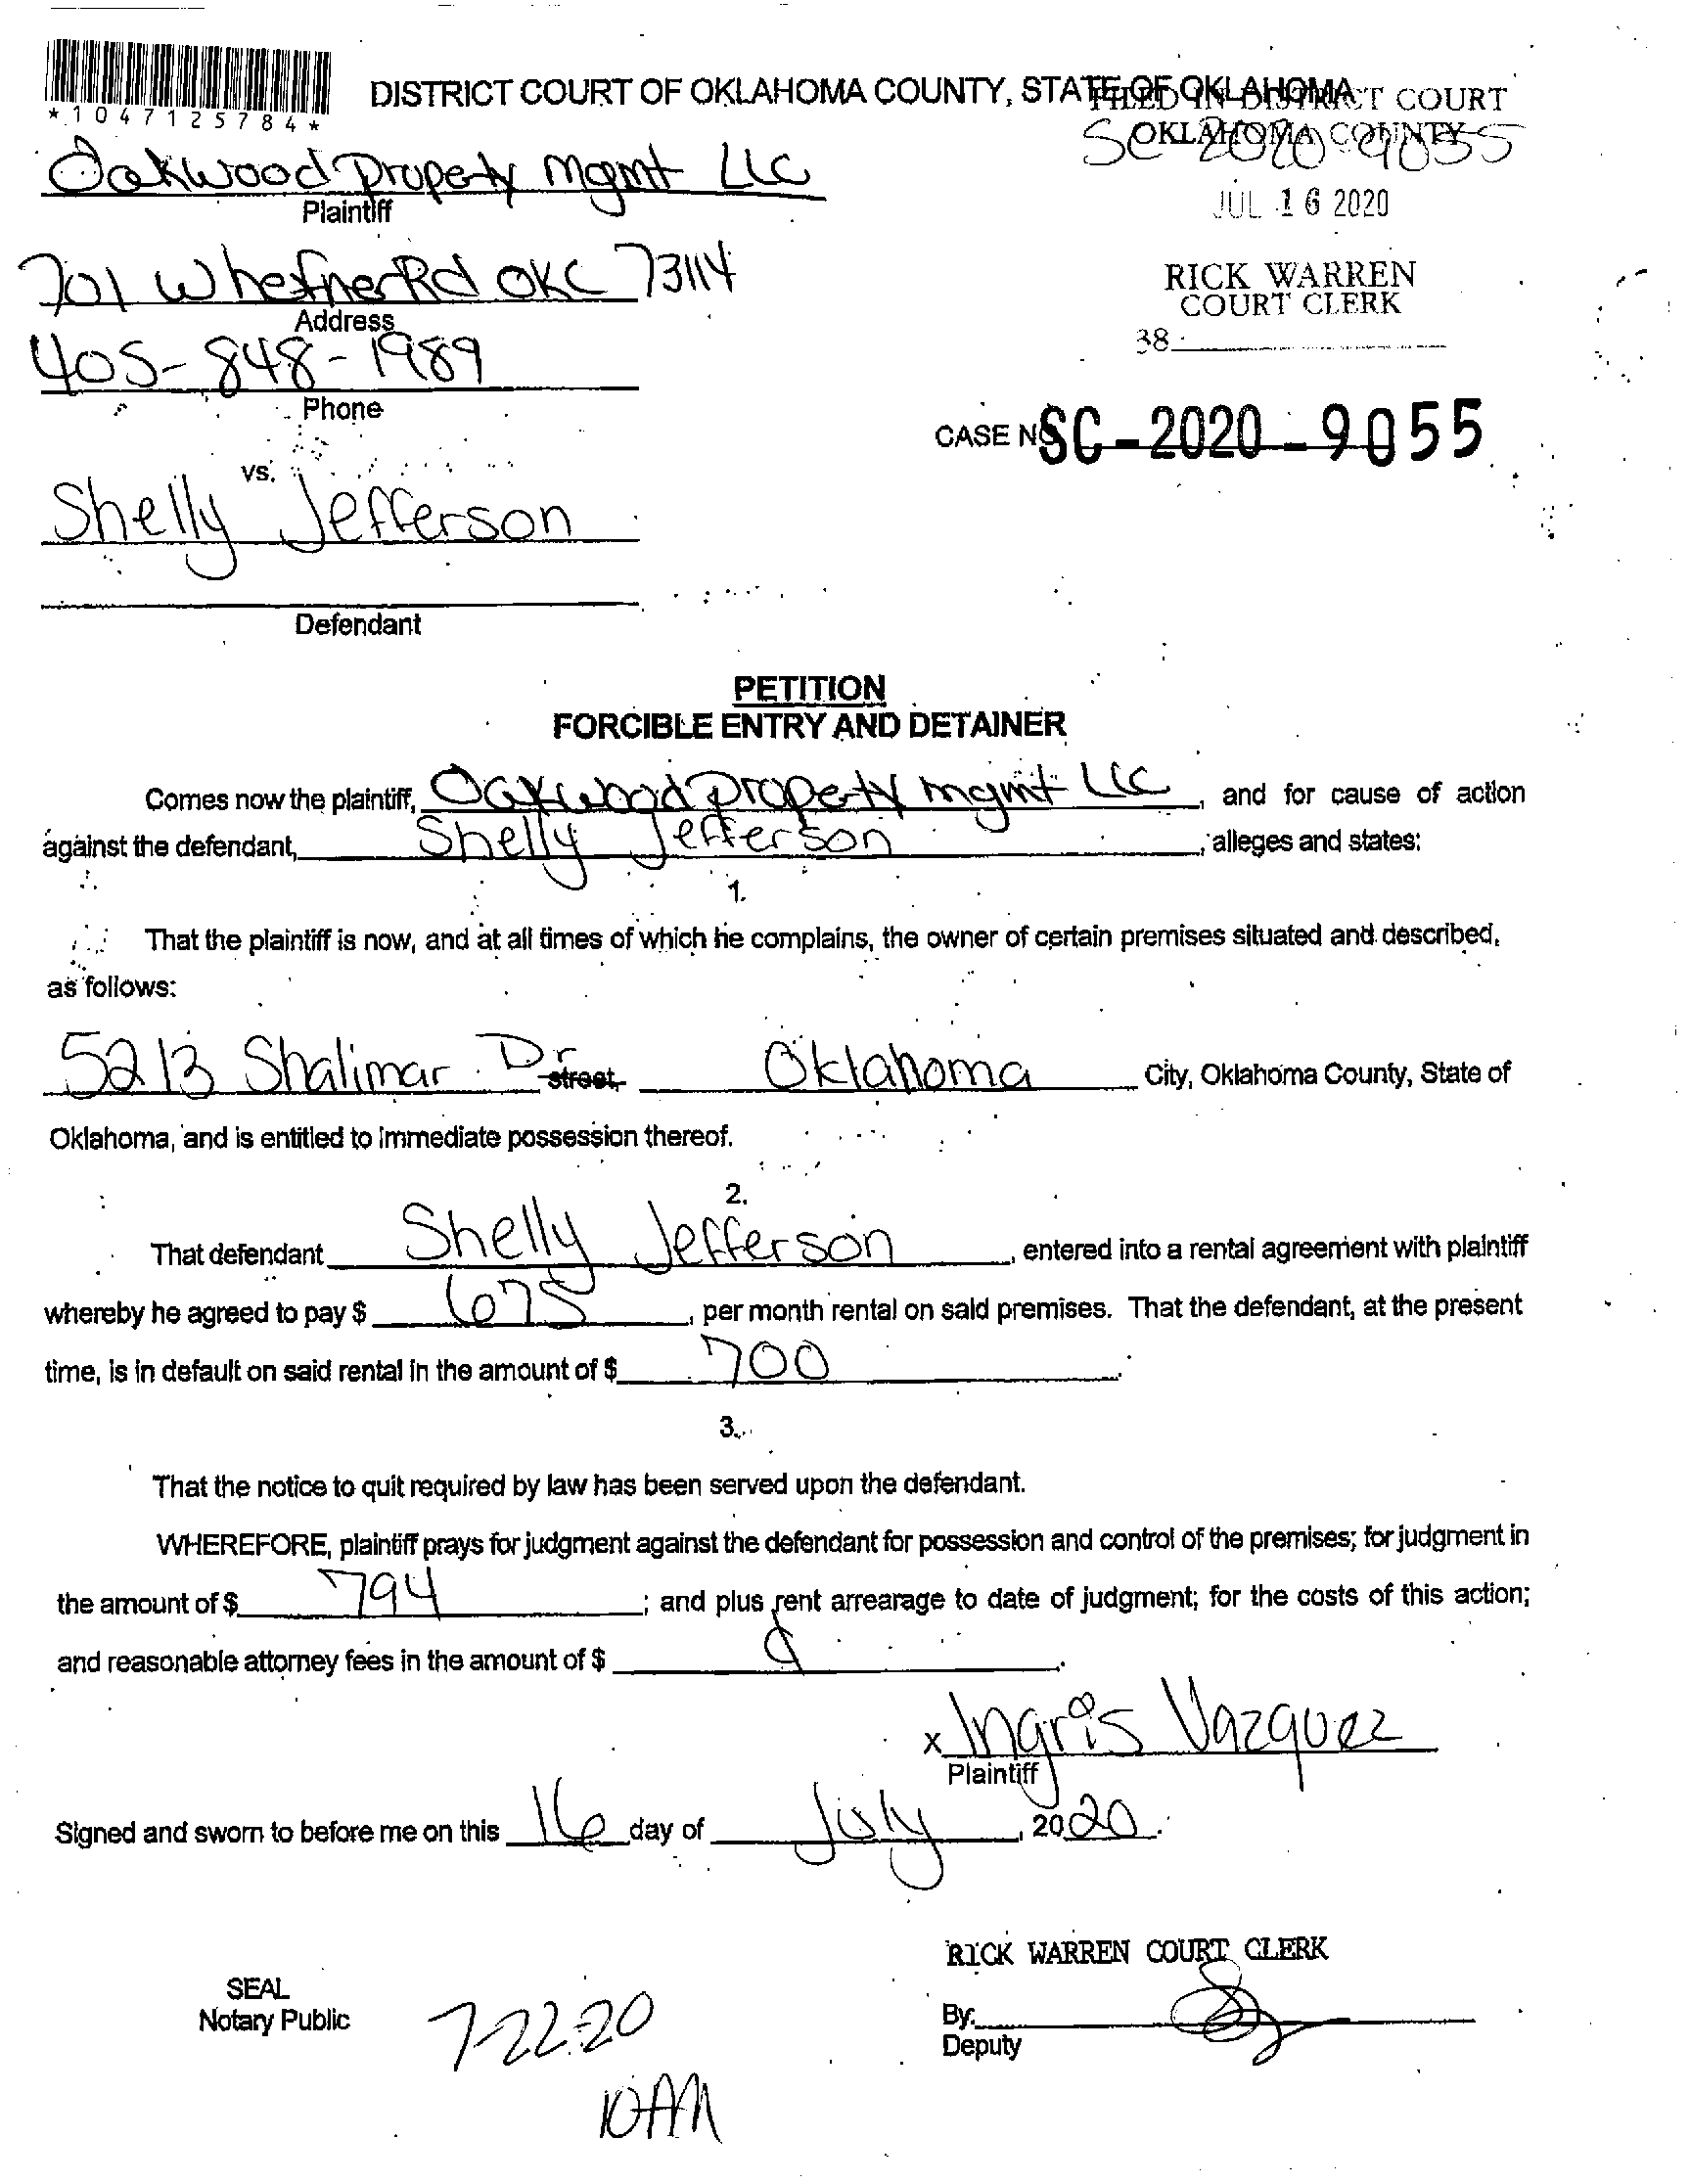 DISTRICT COURT OF OKLAHOMA COUNTY, STATE OF OKLAHOMA
FILED IN DISTRICT COURT
OKLAHOMA COUNTY
SC 2020 9055
*1047125784*
Oakwood Property Mgmt LLC
Plaintiff
JUL 16 2020
701 W hefner Rd OKC 73114
Address
RICK WARREN
COURT CLERK
38
405-848-1989
Phone
CASE NO SC-2020-9055
vs.
Shelly Jefferson
Defendant
PETITION
FORCIBLE ENTRY AND DETAINER
Comes now the plaintiff, Oakwood Property mgmt LLC, and for cause of action
against the defendant, Shelly Jefferson, alleges and states:
1.
That the plaintiff is now, and at all times of which he complains, the owner of certain premises situated and described,
as follows:
5213 Shalimar Dr street, Oklahoma City, Oklahoma County, State of
Oklahoma, and is entitled to immediate possession thereof.
2.
That defendant Shelly Jefferson, entered into a rental agreement with plaintiff
whereby he agreed to pay $ 675, per month rental on said premises. That the defendant, at the present
time, is in default on said rental in the amount of $ 700.
3.
That the notice to quit required by law has been served upon the defendant.
WHEREFORE, plaintiff prays for judgment against the defendant for possession and control of the premises; for judgment in
the amount of $ 794; and plus rent arrearage to date of judgment; for the costs of this action;
and reasonable attorney fees in the amount of $
x Ingris Vazquez
Plaintiff
Signed and sworn to before me on this 16 day of July, 2020.
RICK WARREN COURT CLERK
SEAL
Notary Public
By:
Deputy
7-22-20
10AM